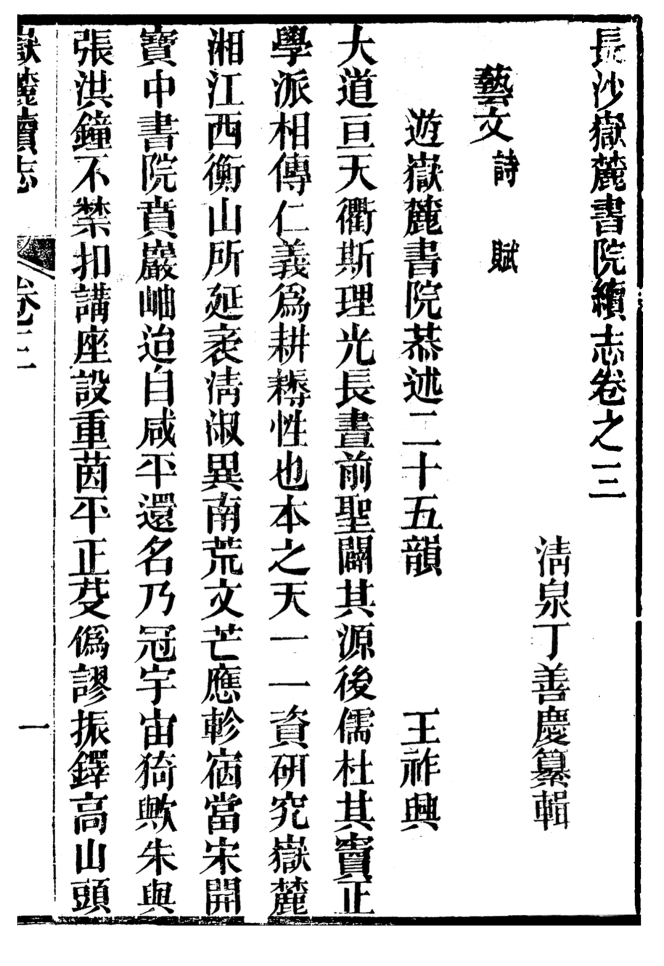 長沙嶽麓書院續志卷之三
淸泉丁善慶纂輯
藝文 詩 賦
遊嶽麓書院恭述二十五韻 王祚興
大道亘天衢斯理光長晝前聖闢其源後儒杜其竇正
學派相傳仁義爲耕耨性也本之天一一資研究嶽麓
湘江西衡山所延袤淸淑異南荒文芒應軫宿當宋開
寶中書院賁巖岫迨自咸平還名乃冠宇宙猗歟朱與
張洪鐘不禁扣講座設重茵平正芟僞謬振鐸高山頭
嶽麓續志 卷三 一